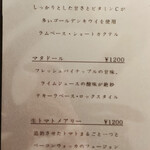 しっかりとした甘さとビタミンCが
多いゴールデンキウイを使用
ラムベース・ショートカクテル
マタドール ¥1200
フレッシュパイナップルの甘味、
ライムジュースの酸味が絶妙
テキーラベース・ロックスタイル
生トマトメアリー ¥1200
高糖度フルーツトマトまるごと一つと